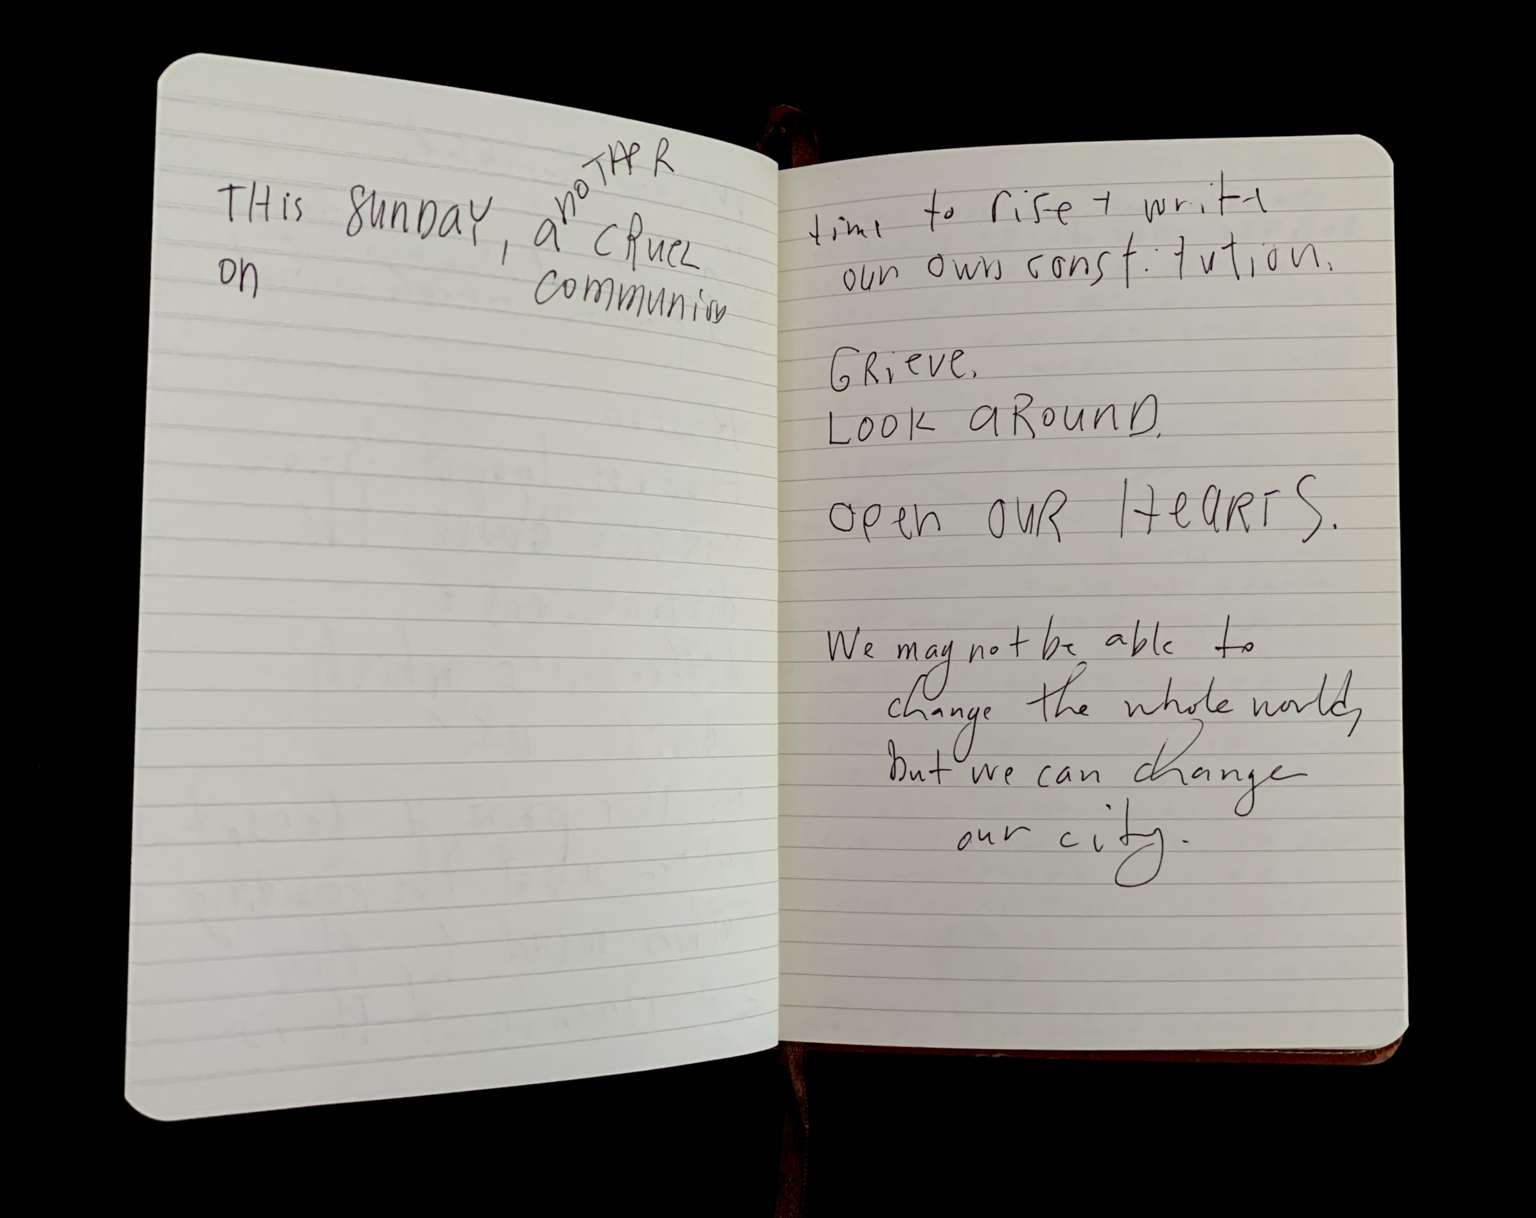 THis SUNDAY, aNOTHER
CRUEL
on communion
time to rise + write
our own constitution.
GRieve.
LOOK aROUND.
open OUR HeaRTS.
We may not be able to
change the whole world,
but we can change
our city.